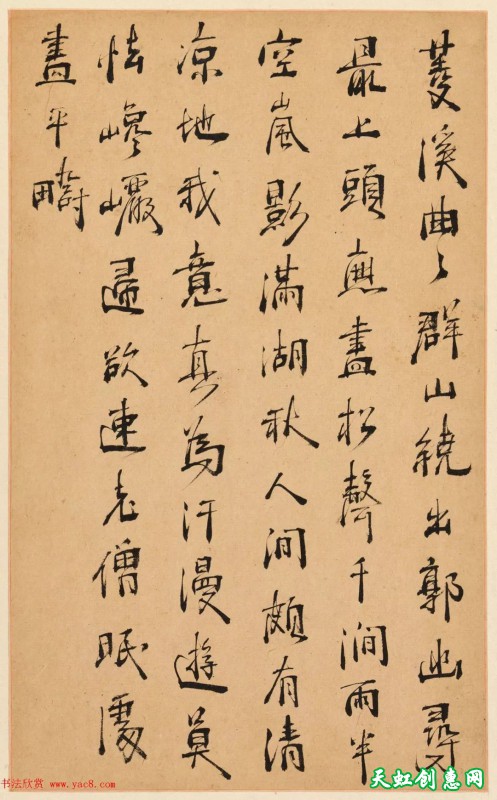 菱溪曲々群山繞出郭幽尋
最上頭無盡松聲千澗雨半
空嵐影滿湖秋人間頗有清
涼地我意真為汗漫遊莫
怯巉巖歸欲速老僧眠處
盡平疇
书法欣赏 www.yac8.com
天虹创惠网